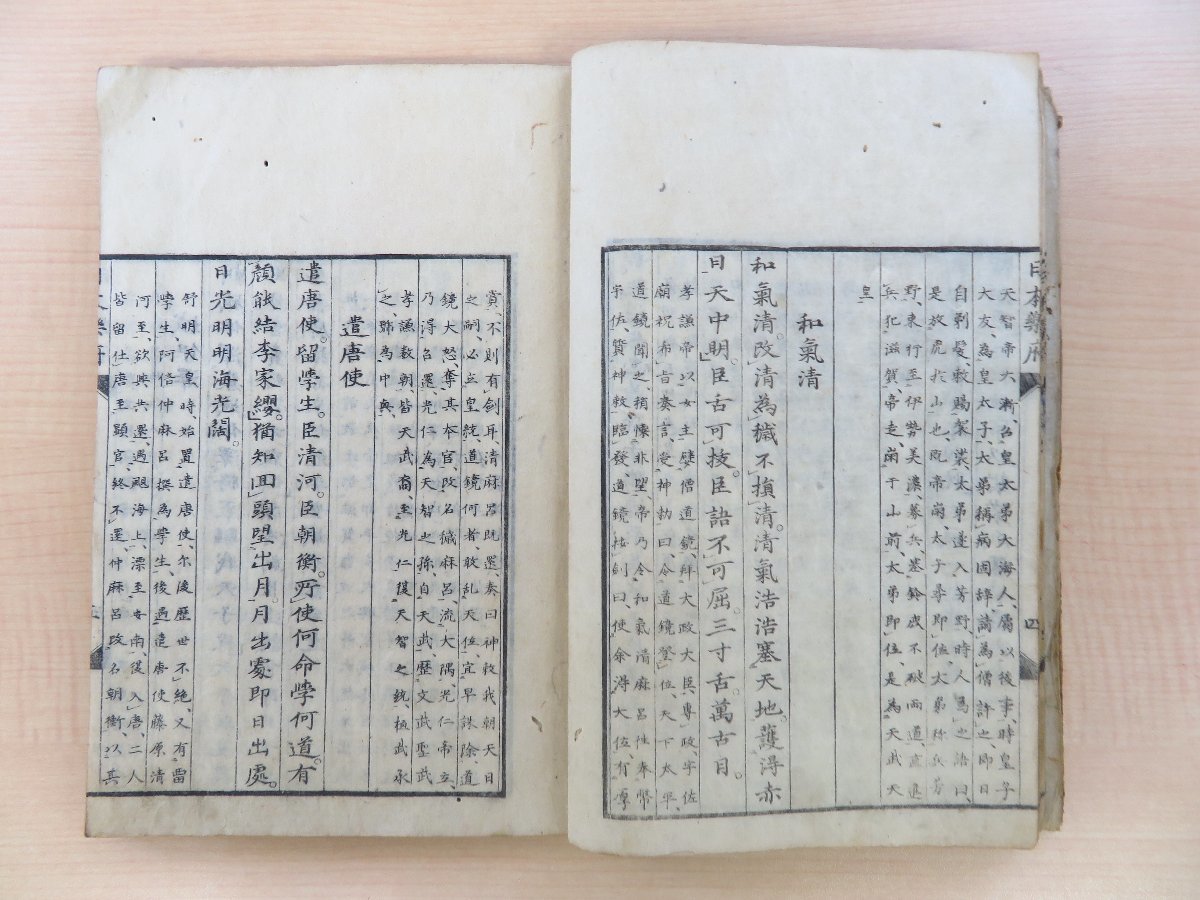 天智帝大漸、召皇太弟大海人、屬以後事、時皇子
大友為皇太子、太弟稱病固辞、請為僧、許之、即日
自剃髮、敕賜袈裟、太弟遂入芳野、時人為之語曰、
是放虎於山也、既帝崩、太子尋即位、太弟称兵芳
野、東行至伊勢美濃、募兵、
兵犯滋賀、帝走、崩于山前、太弟即位、是為天武天
皇
和氣清
和氣清。改清為穢不損清。清氣浩浩塞天地。護得赤
日天中明。臣舌可拔。臣語不可屈。三寸舌。萬古目。
孝謙帝以女主嬖僧道鏡、拜大政大臣、專政、宇佐
廟祝希旨奏言、受神勅曰、令道鏡登位、天下太平、
道鏡聞之、稍懐非望、帝乃令和氣清麻呂往奉幣
宇佐、質神敕、臨發、道鏡按劍曰、使余得大位、有厚
賞、不則有劍耳、清麻呂既還、奏曰、神敕我朝天日
之嗣、必立皇統、道鏡何者、敢乱天位、宜早誅除、道
鏡大怒、奪其本官、改名穢麻呂、流大隅、光仁帝立、
乃得召還、光仁為天智之孫、自天武、歷文武聖武
孝謙数朝、皆天武裔、至光仁復天智之統、桓武承
之、號為中興、
遣唐使
遣唐使。留學生。臣清河。臣朝衡。所使何命學何道。有
顏能結李家纓。猶知回頭望出月。月出處即日出處。
日光明明海光闊。
舒明天皇時、始置遣唐使、尓後歴世不絶、又有留
學生、阿倍仲麻呂撰為學生、後遇遣唐使藤原清
河至、欲與共還、遇颶海上、漂至安南、復入唐、二人
皆留仕唐、至顕官、終不還、仲麻呂改名朝衡、以其
日本樂府
四